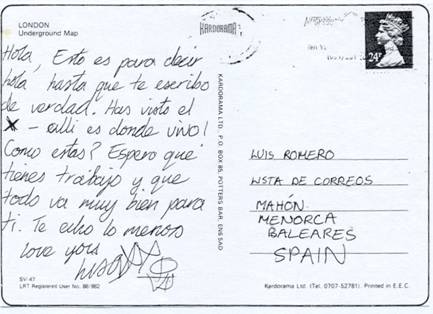 LONDON
Underground Map
Hola, Esto es para decir
hola hasta que te escribo
de verdad. Has visto el
X - alli es donde vivo!
Como estas? Espero que
tienes trabajo y que
todo va muy bien para
ti. Te echo lo menos
love yors
SV-47
LRT Registered User No. 88/982
KARDORAMA
KARDORAMA LTD., P.O. BOX 85, POTTERS BAR, EN6 5AD
24
LUIS ROMERO
LISTA DE CORREOS
MAHÓN
MENORCA
BALEARES
SPAIN
Kardorama Ltd. (Tel. 0707-52781). Printed in E.E.C.